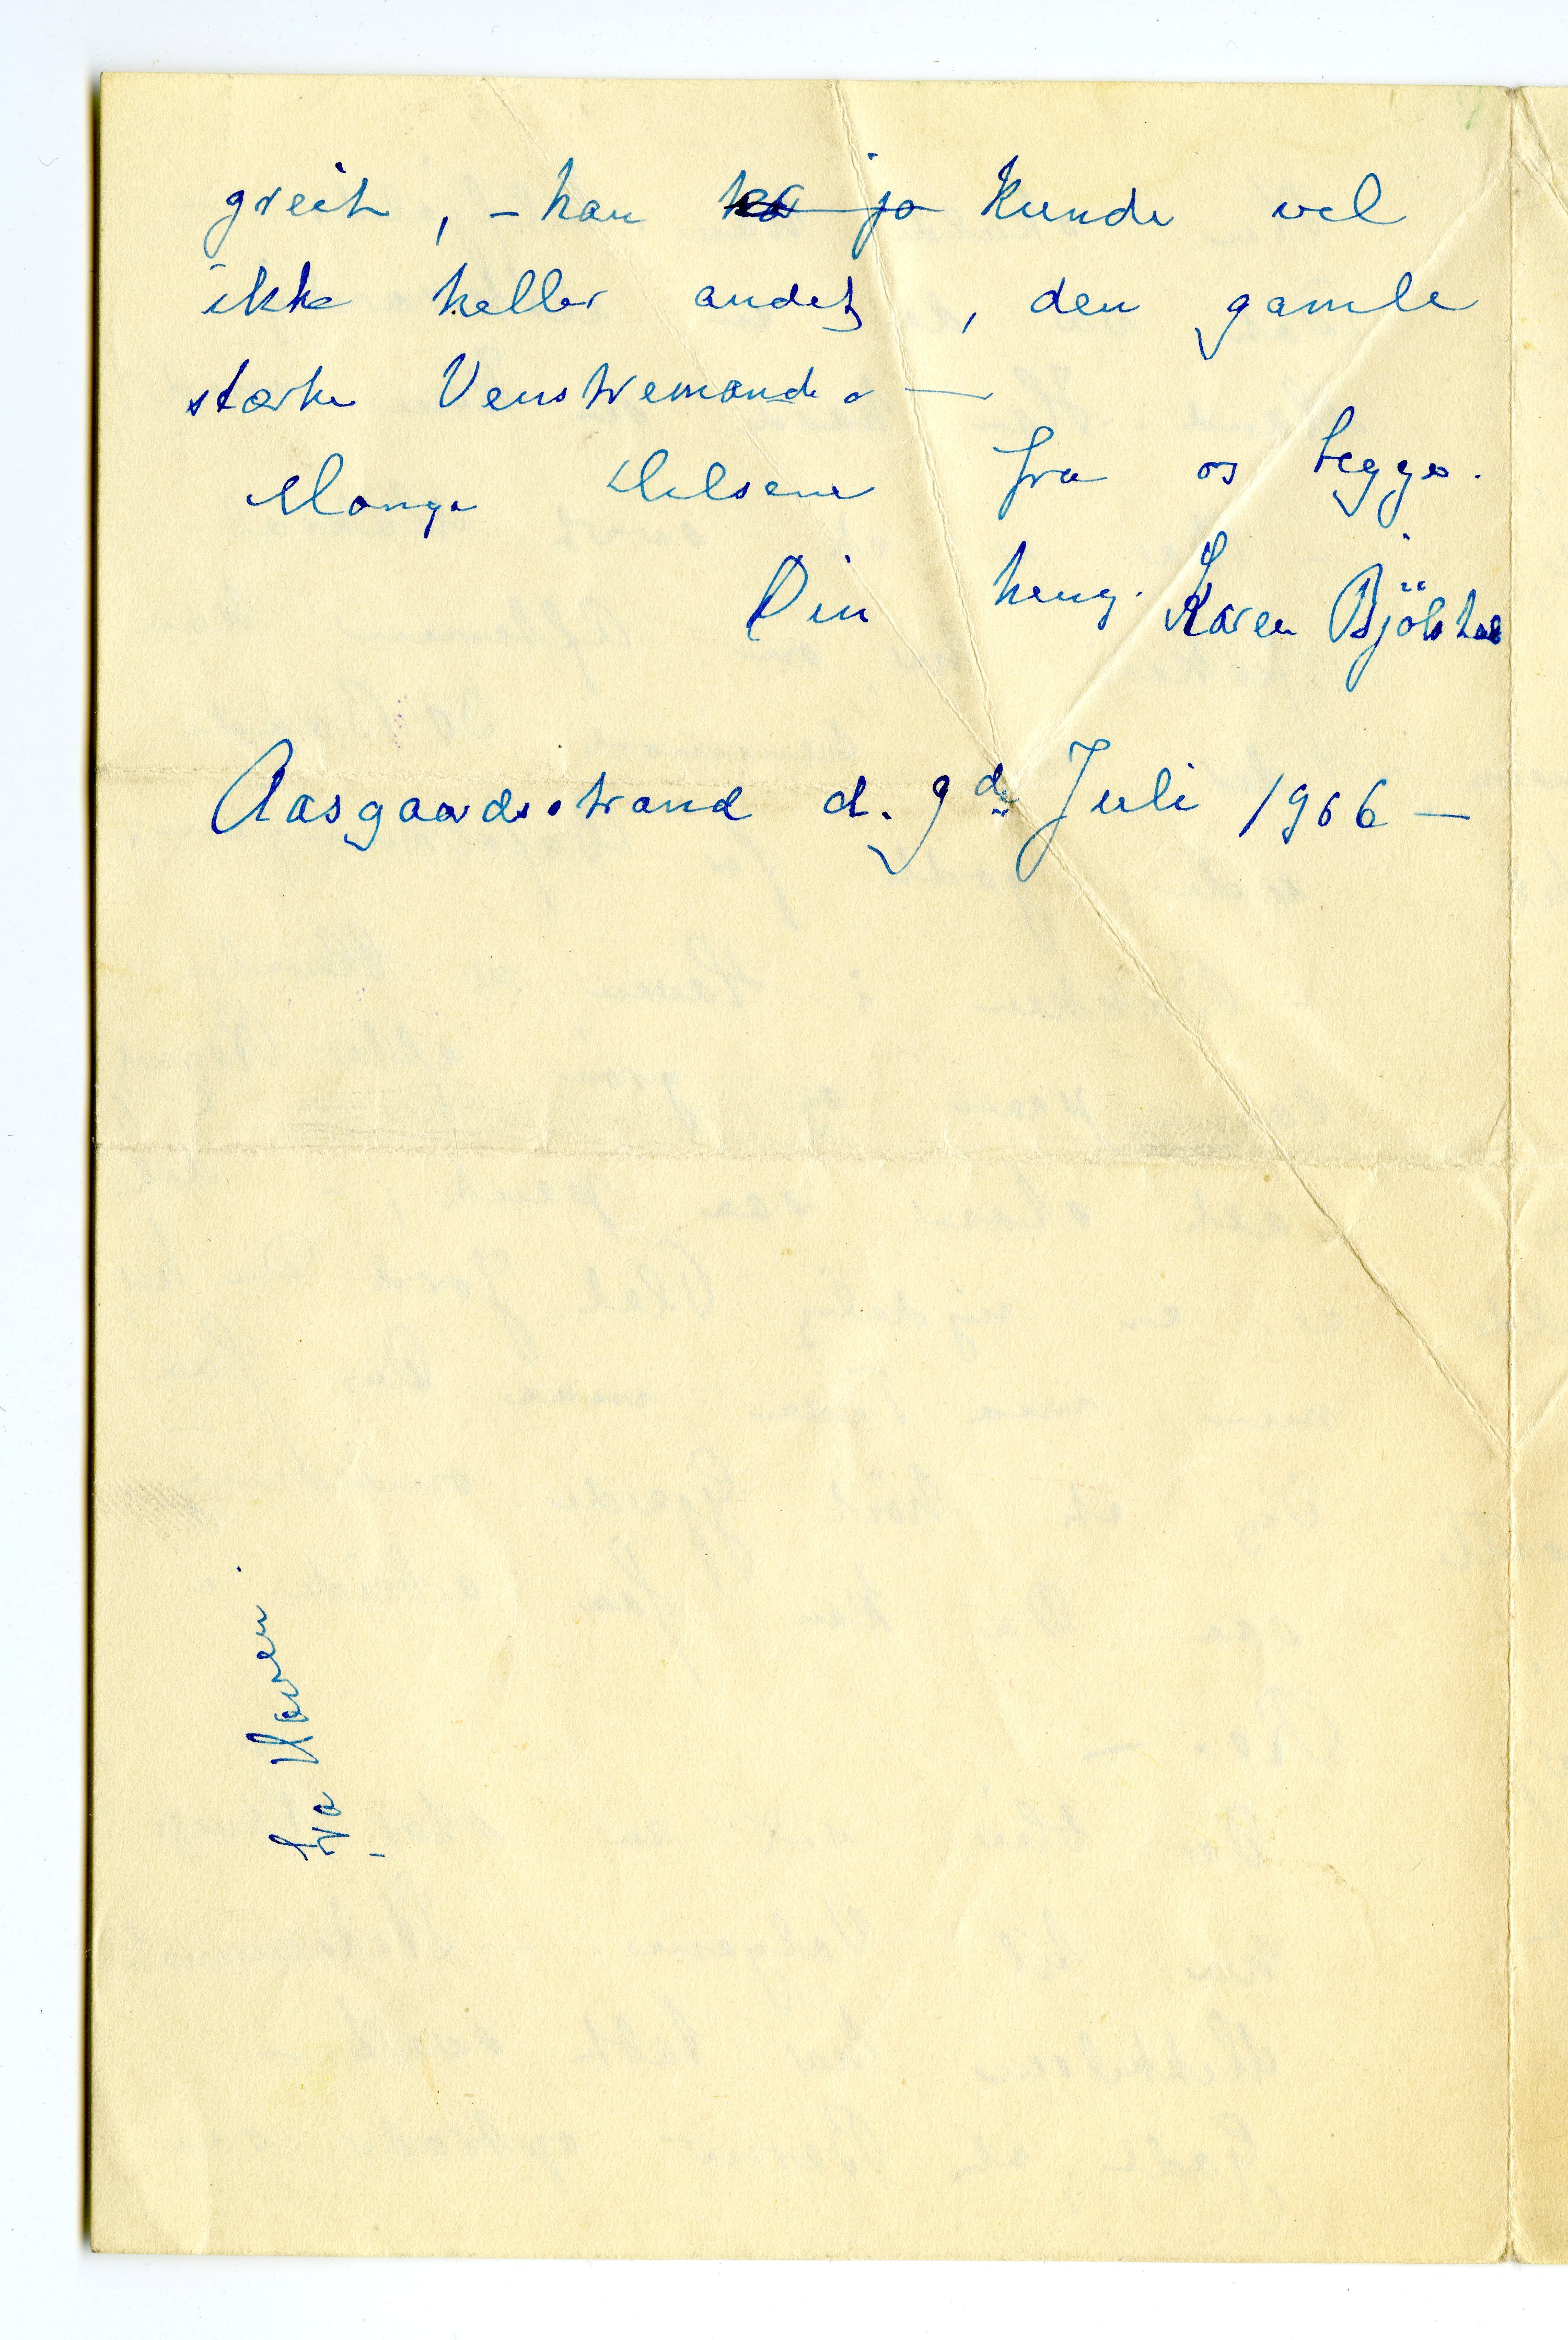 greit, – han ha ja kunde vel
ikke heller andet, den gamle
stærke Venstremand. –
Mange Hilsener fra os begge.
Din heng. Karen Bjölstad
Aasgaardsstrand d. 9de Juli 1906 –
fra Karen